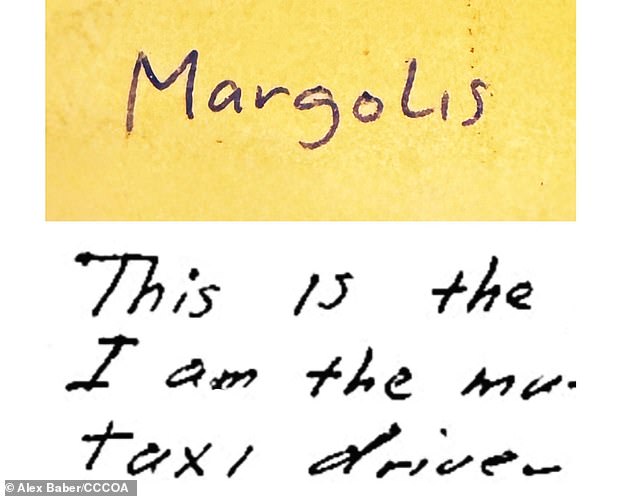 Margolis
This is the
I am the mu-
taxi driver
© Alex Baber/CCCOA